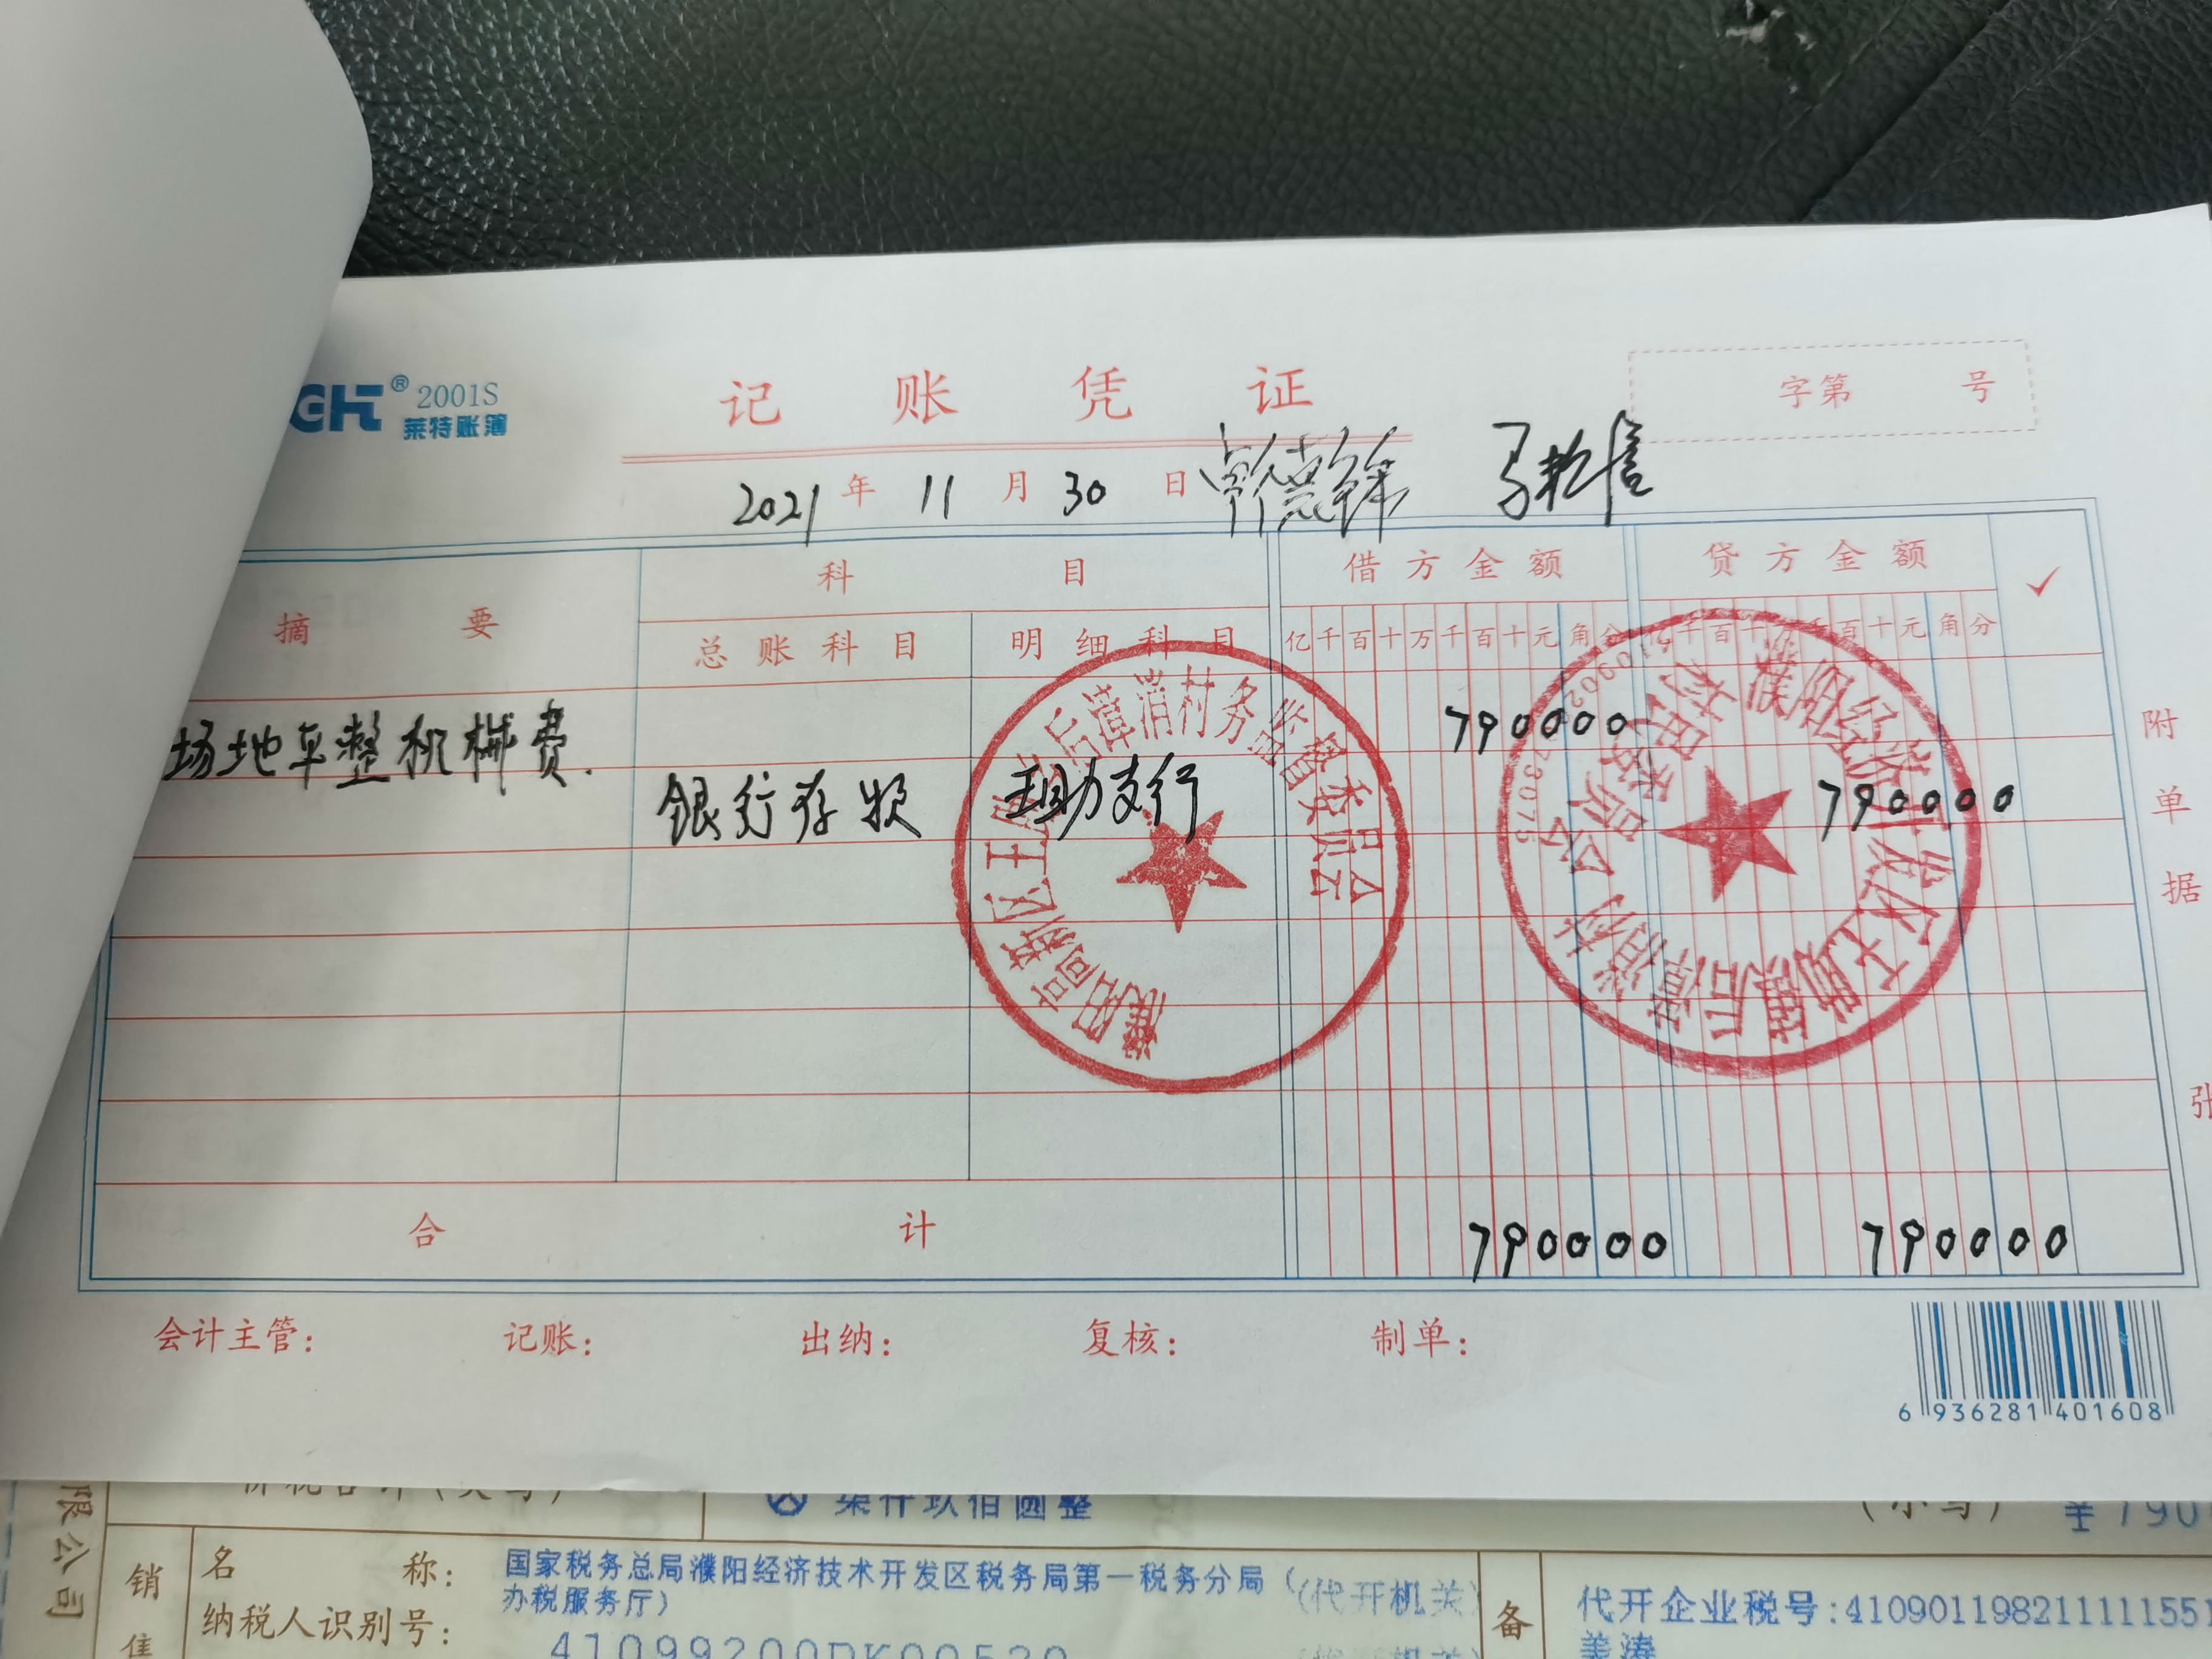 2001S
莱特账簿
记账凭证
字第 号
2021年11月30日
摘要
科目
借方金额
贷方金额
✓
总账科目
明细科目
亿千百十万千百十元角分
亿千百十万千百十元角分
场地平整机械费.
790000
银行存款
王助支行
790000
合计
790000
790000
附单据 张
濮阳高新区王助镇后漳消村务监督委员会
濮阳经济开发区王助镇后漳消村村民委员会
会计主管:
记账:
出纳:
复核:
制单:
6 936281 401608
限公司
柒仟玖佰圆整
(小写) ¥790
销售
名称:
国家税务总局濮阳经济技术开发区税务局第一税务分局(
办税服务厅)
(代开机关)
纳税人识别号:
备
代开企业税号:410901198211111551